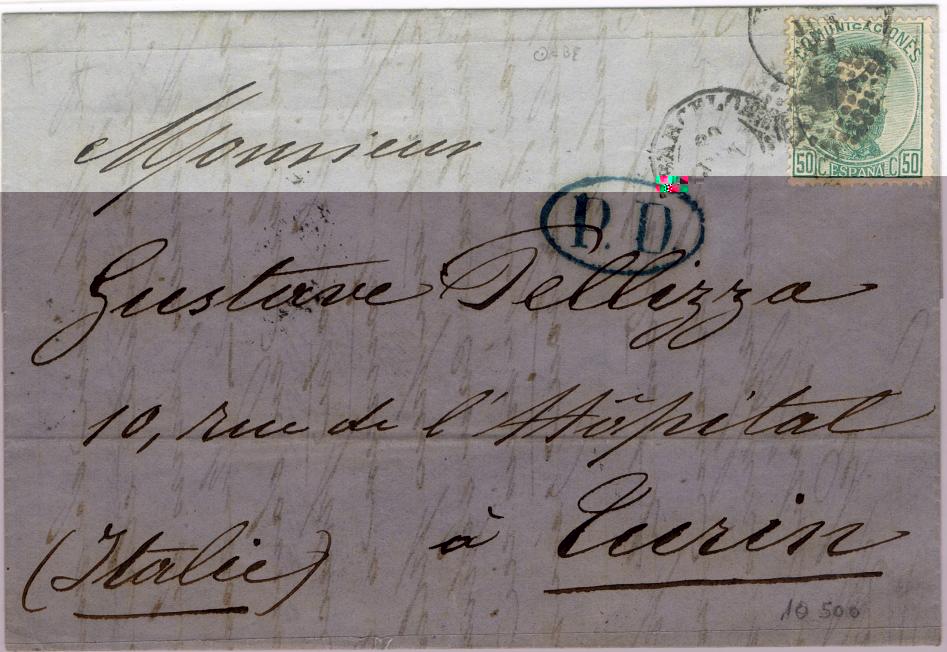 COMUNICACIONES
50 C. ESPAÑA C. 50
BARCELONA
Monsieur
P. D.
Gustave Pellizza
10, rue de l'Hôpital
à Turin
(Italie)
10 500